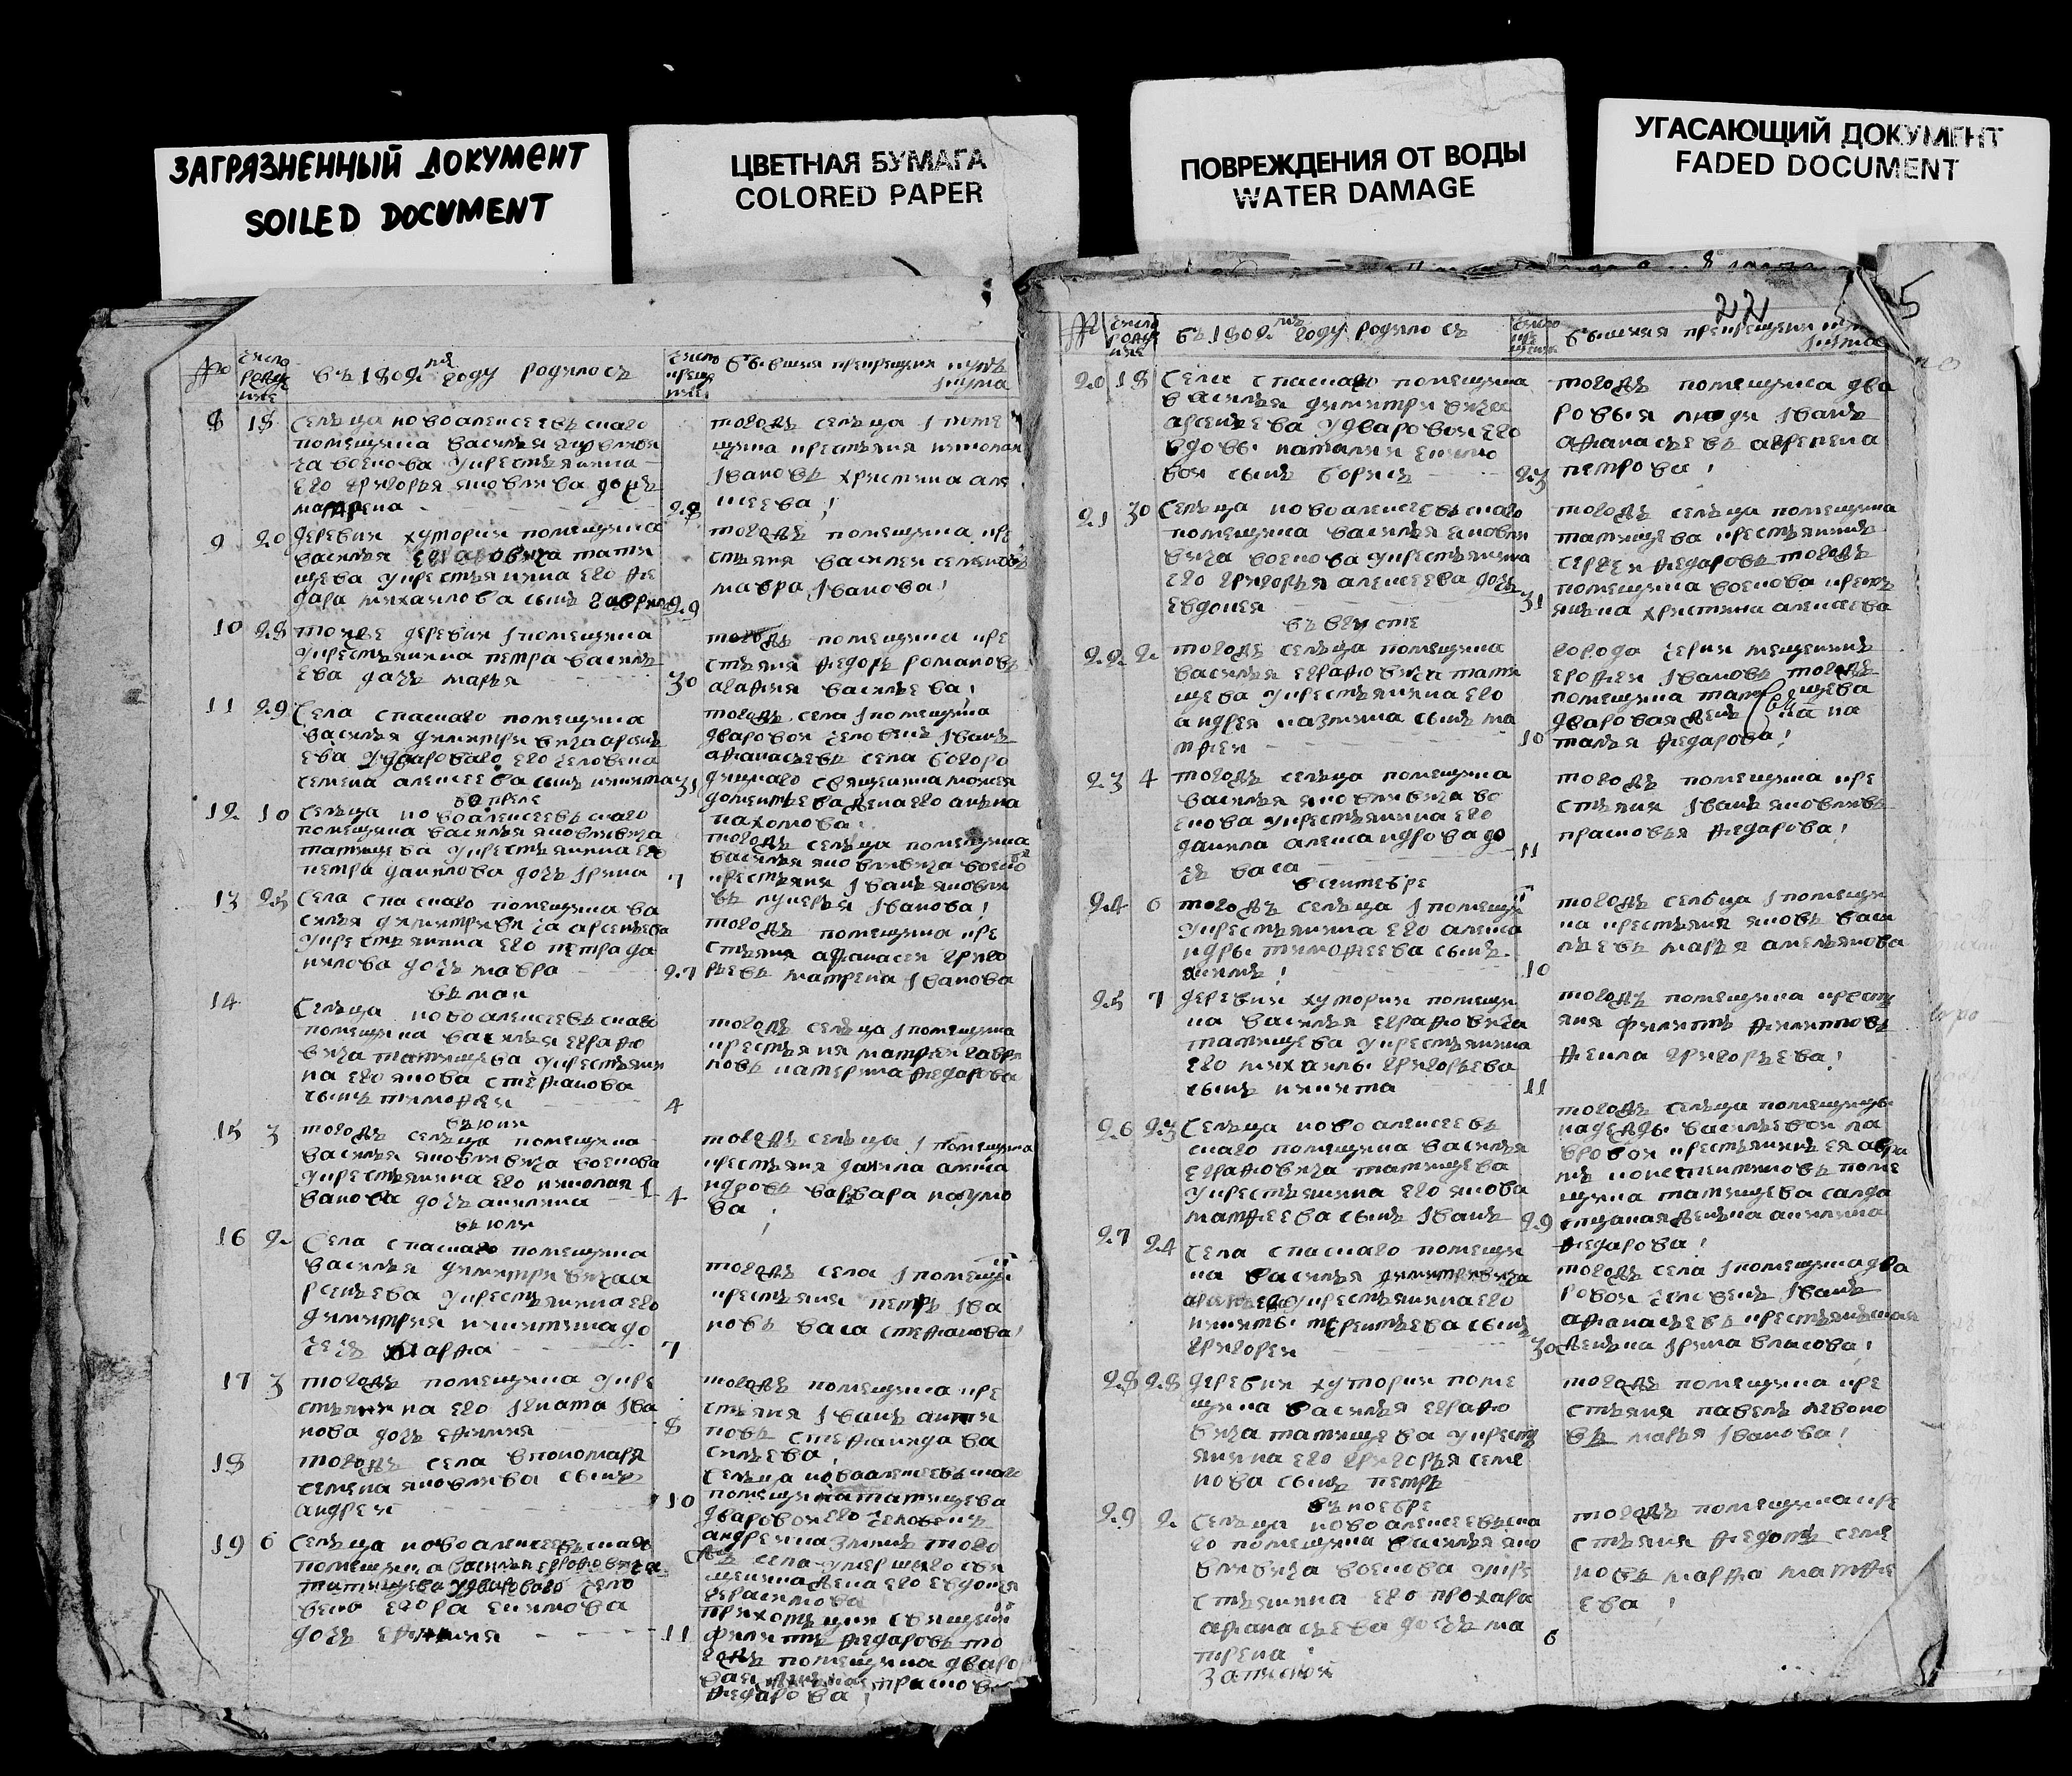 ЗАГРЯЗНЕННЫЙ ДОКУМЕНТ
SOILED DOCUMENT
ЦВЕТНАЯ БУМАГА
COLORED PAPER
ПОВРЕЖДЕНИЯ ОТ ВОДЫ
WATER DAMAGE
УГАСАЮЩИЙ ДОКУМЕНТ
FADED DOCUMENT
№ число рожде ние
въ 1802 м году родилось
8 18 селъца новоалексеевъскаго
помещика василья яковлеви
ча воекова укрестьянина
его григорья яковлева дочь
матрена 28
тогожъ селъца і поме
щика крестьяне николаи
івановъ христина але
ксеева
9 20 деревни хутории помещика
василья евграфовича тати
щева укрестьянина его фе
дара михаилова сынъ гаврила 29
тогожъ помещика кре
стьяне василеи семеновъ
мавра іванова
10 28 тоиже деревни іпомещика
укрестьянина петра василь
ева дочь марья 30
тогожъ помещика кре
стьяне федоръ романовъ
агафия васильева
11 29 села спаскаго помещика
василья димитривича арсень
ева удвароваго его человека
семена алексеева сынъ никита 31
тогожъ села іпомещика
дваровои человекъ іванъ
афанасьевъ села богоро
дицкаго священика мосея
доментьева жена его анна
пахомова
вопреле
12 10 селъца новоалексеевъскаго
помещика василья яковлевича
татищева укрестьянина его
петра данилова дочь ірина 7
тогожъ селъца помещика
василья яковлевича воеково
крестьяне іванъ яковле
въ лукерья іванова
13 25 села спаскаго помещика ва
силья димитривича арсеньева
укрестьянина его петра да
нилова дочь мавра 27
тогожъ помещика кре
стьяне афанасеи григо
рьевъ матрена іванова
въ маи
14 селъца новоалексеевъскаго
помещика василья еграфо
вича татищева укрестьяни
на его якова стефанова
сынъ тимофеи 4
тогожъ селъца іпомещика
крестьяне матфеи гаври
ловъ катерина федарова
въ июни
15 3 тогожъ селъца помещика
василья яковлевича воекова
укрестьянина его николая і
ванова дочь акилина 4
тогожъ селъца і помещика
крестьяне данила алекса
ндровъ варвара наумо
ва
въ июли
16 2 села спаскаго помещика
василья димитривича а
рсеньева укрестьянина его
димитрия никитина до
чечь марфа 7
тогожъ села іпомещи
крестьяне петръ іва
новъ васа стефанова
17 3 тогожъ помещика укре
стьянина его ігната іва
нова дочь ефимия 8
тогожъ помещика кре
стьяне іванъ антя
повъ стефанида ва
сильева
18 тогожъ села впономаря
семена яковлева сынъ
андреи 10
селъца новоалексеевъскаго
помещика татищева
дваровои его человекъ
андреи казминъ того
жъ села умершего свя
щеника жена его евдокея
герасимова
19 6 селъца новоалексеевъскаго
помещика василья еграфовича
татищева удвароваго чело
века егора екимова
дочь ефимия 11
приходцкии священи
филиппъ федаровъ то
гожъ помещика дваро
вая женка прасковья
федарова
22
5
№ число рожде ние
въ 1802 мъ году родилось
20 18 села спаскаго помещика
василья димитривича
арсеньева удваровои его
вдовы наталии екимо
вои сынъ борисъ 23
тогожъ помещика два
ровыя люди іванъ
афанасьевъ агрепена
петрова
21 30 селъца новоалексеевъскаго
помещика василья яковле
вича воекова укрестьянина
его григорья алексеева дочь
евдокея 31
тогожъ селъца помещика
татищева крестьянинъ
сергеи федаровъ тогожъ
помещика воекова кресть
янка христина алексеева
въ августе
22 2 тогожъ селъца помещика
василья еграфовича тати
щева укрестьянина его
андрея казмина сынъ ма
тфеи 10
города черни мещенинъ
ерофеи івановъ тогожъ
помещика татищева
дваровая женка на
талья федарова
23 4 тогожъ селъца помещика
василья яковлевича во
екова укрестьянина его
данила александрова до
чь васа 11
тогожъ помещика кре
стьяне іванъ яковлевъ
прасковья федарова
всентебре
24 6 тогожъ селъца іпомещи
укрестьянина его алекса
ндры тимофеева сынъ
якимъ 10
тогожъ селъца іпомещи
ка крестьяне яковъ васи
льевъ марья амельянова
25 7 деревни хутории помещи
ка василья еграфовича
татищева укрестьянина
его михаилы григорьева
сынъ никита 11
тогожъ помещика кресть
яне филиппъ филиповъ
фекла григорьева
26 23 селъца новоалексеевъ
скаго помещика василья
еграфовича татищева
укрестьянина его якова
матфеева сынъ іванъ 29
тогожъ селъца помещицы
надежды васильевои ла
вровои крестьянинъ ея авра
мъ констентиновъ поме
щика татищева салда
цкая женка акилина
федарова
27 24 села спаскаго помещи
ка василья димитривича
арсеньева укрестьянина его
никиты терентьева сынъ
григореи 30
тогожъ села іпомещика два
ровои человекъ іванъ
афанасьевъ крестьянъская
женка ірина власова
28 28 деревни хутории поме
щика василья еграфо
вича татищева укресть
янина его григорья семе
нова сынъ петръ
тогожъ помещика кре
стьяне павелъ левоно
въ марья іванова
въ ноебре
29 2 селъца новоалексеевъска
го помещика василья яко
влевича воекова укре
стьянина его прохара
афанасьева дочь ма
трена 6
тогожъ помещика кре
стьяне федотъ семе
новъ марфа матфе
ева